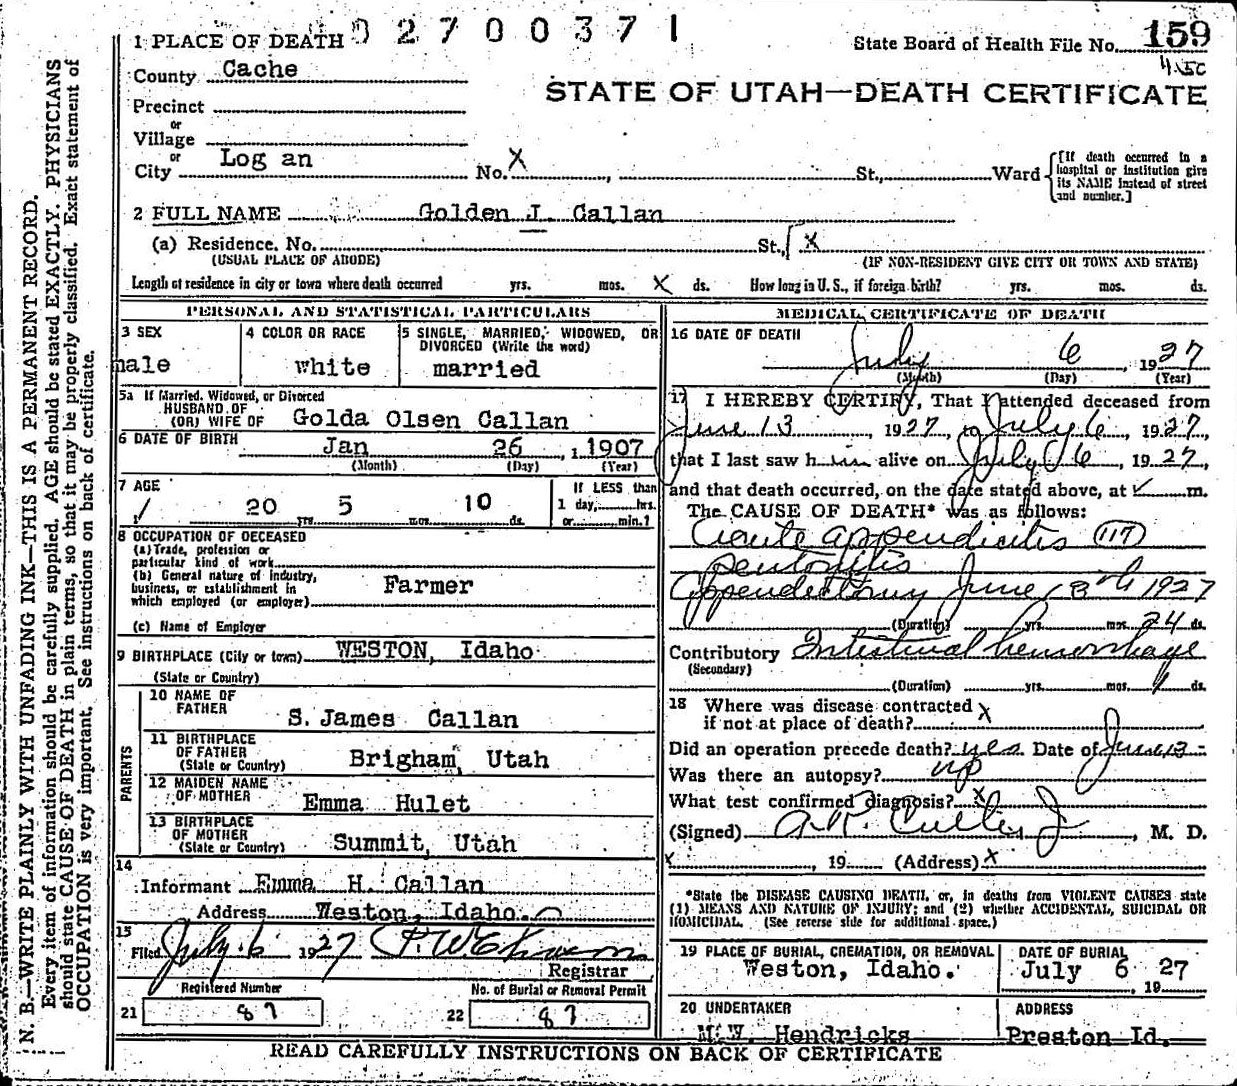 02700371
1 PLACE OF DEATH
State Board of Health File No. 159
County Cache
4.5c
STATE OF UTAH—DEATH CERTIFICATE
Precinct
or
Village
or
City Log an No. X , St., Ward
[If death occurred in a hospital or institution give its NAME instead of street and number.]
2 FULL NAME Golden J. Callan
(a) Residence. No. St., X
(USUAL PLACE OF ABODE) (IF NON-RESIDENT GIVE CITY OR TOWN AND STATE)
Length of residence in city or town where death occurred yrs. mos. X ds. How long in U. S., if foreign birth? yrs. mos. ds.
PERSONAL AND STATISTICAL PARTICULARS
3 SEX
male
4 COLOR OR RACE
white
5 SINGLE, MARRIED, WIDOWED, OR
DIVORCED (Write the word)
married
5a If Married, Widowed, or Divorced
HUSBAND OF
(OR) WIFE OF Golda Olsen Callan
6 DATE OF BIRTH Jan 26 , 1907
(Month) (Day) (Year)
7 AGE
20 yrs. 5 mos. 10 ds.
If LESS than
1 day, hrs.
or min.?
8 OCCUPATION OF DECEASED
(a) Trade, profession or
particular kind of work
(b) General nature of industry,
business, or establishment in
which employed (or employer) Farmer
(c) Name of Employer
9 BIRTHPLACE (City or town) WESTON, Idaho
(State or Country)
PARENTS
10 NAME OF
FATHER S. James Callan
11 BIRTHPLACE
OF FATHER
(State or Country) Brigham, Utah
12 MAIDEN NAME
OF MOTHER Emma Hulet
13 BIRTHPLACE
OF MOTHER
(State or Country) Summit, Utah
14
Informant Emma H. Callan
Address Weston, Idaho.
15
Filed July 6 1927
Registrar
Registered Number No. of Burial or Removal Permit
21 87 22 87
MEDICAL CERTIFICATE OF DEATH
16 DATE OF DEATH
July 6 , 1927
(Month) (Day) (Year)
17 I HEREBY CERTIFY, That I attended deceased from
June 13 , 1927, to July 6 , 1927,
that I last saw him alive on July 6 , 1927,
and that death occurred, on the date stated above, at m.
The CAUSE OF DEATH* was as follows:
Acute appendicitis (117)
peritonitis
Appendectomy June 13th 1927
(Duration) yrs. mos. 24 ds.
Contributory Intestinal hemorrhage
(Secondary)
(Duration) yrs. mos. 1 ds.
18 Where was disease contracted
if not at place of death? X
Did an operation precede death? yes Date of June 13
Was there an autopsy? no
What test confirmed diagnosis? X
(Signed) , M. D.
X , 19 (Address) X
*State the DISEASE CAUSING DEATH, or, in deaths from VIOLENT CAUSES state
(1) MEANS AND NATURE OF INJURY; and (2) whether ACCIDENTAL, SUICIDAL OR
HOMICIDAL. (See reverse side for additional space.)
19 PLACE OF BURIAL, CREMATION, OR REMOVAL
Weston, Idaho.
DATE OF BURIAL
July 6 27
, 19
20 UNDERTAKER
M.W. Hendricks
ADDRESS
Preston Id.
READ CAREFULLY INSTRUCTIONS ON BACK OF CERTIFICATE
N. B.—WRITE PLAINLY WITH UNFADING INK—THIS IS A PERMANENT RECORD.
Every item of information should be carefully supplied. AGE should be stated EXACTLY. PHYSICIANS
should state CAUSE OF DEATH in plain terms, so that it may be properly classified. Exact statement of
OCCUPATION is very important. See instructions on back of certificate.